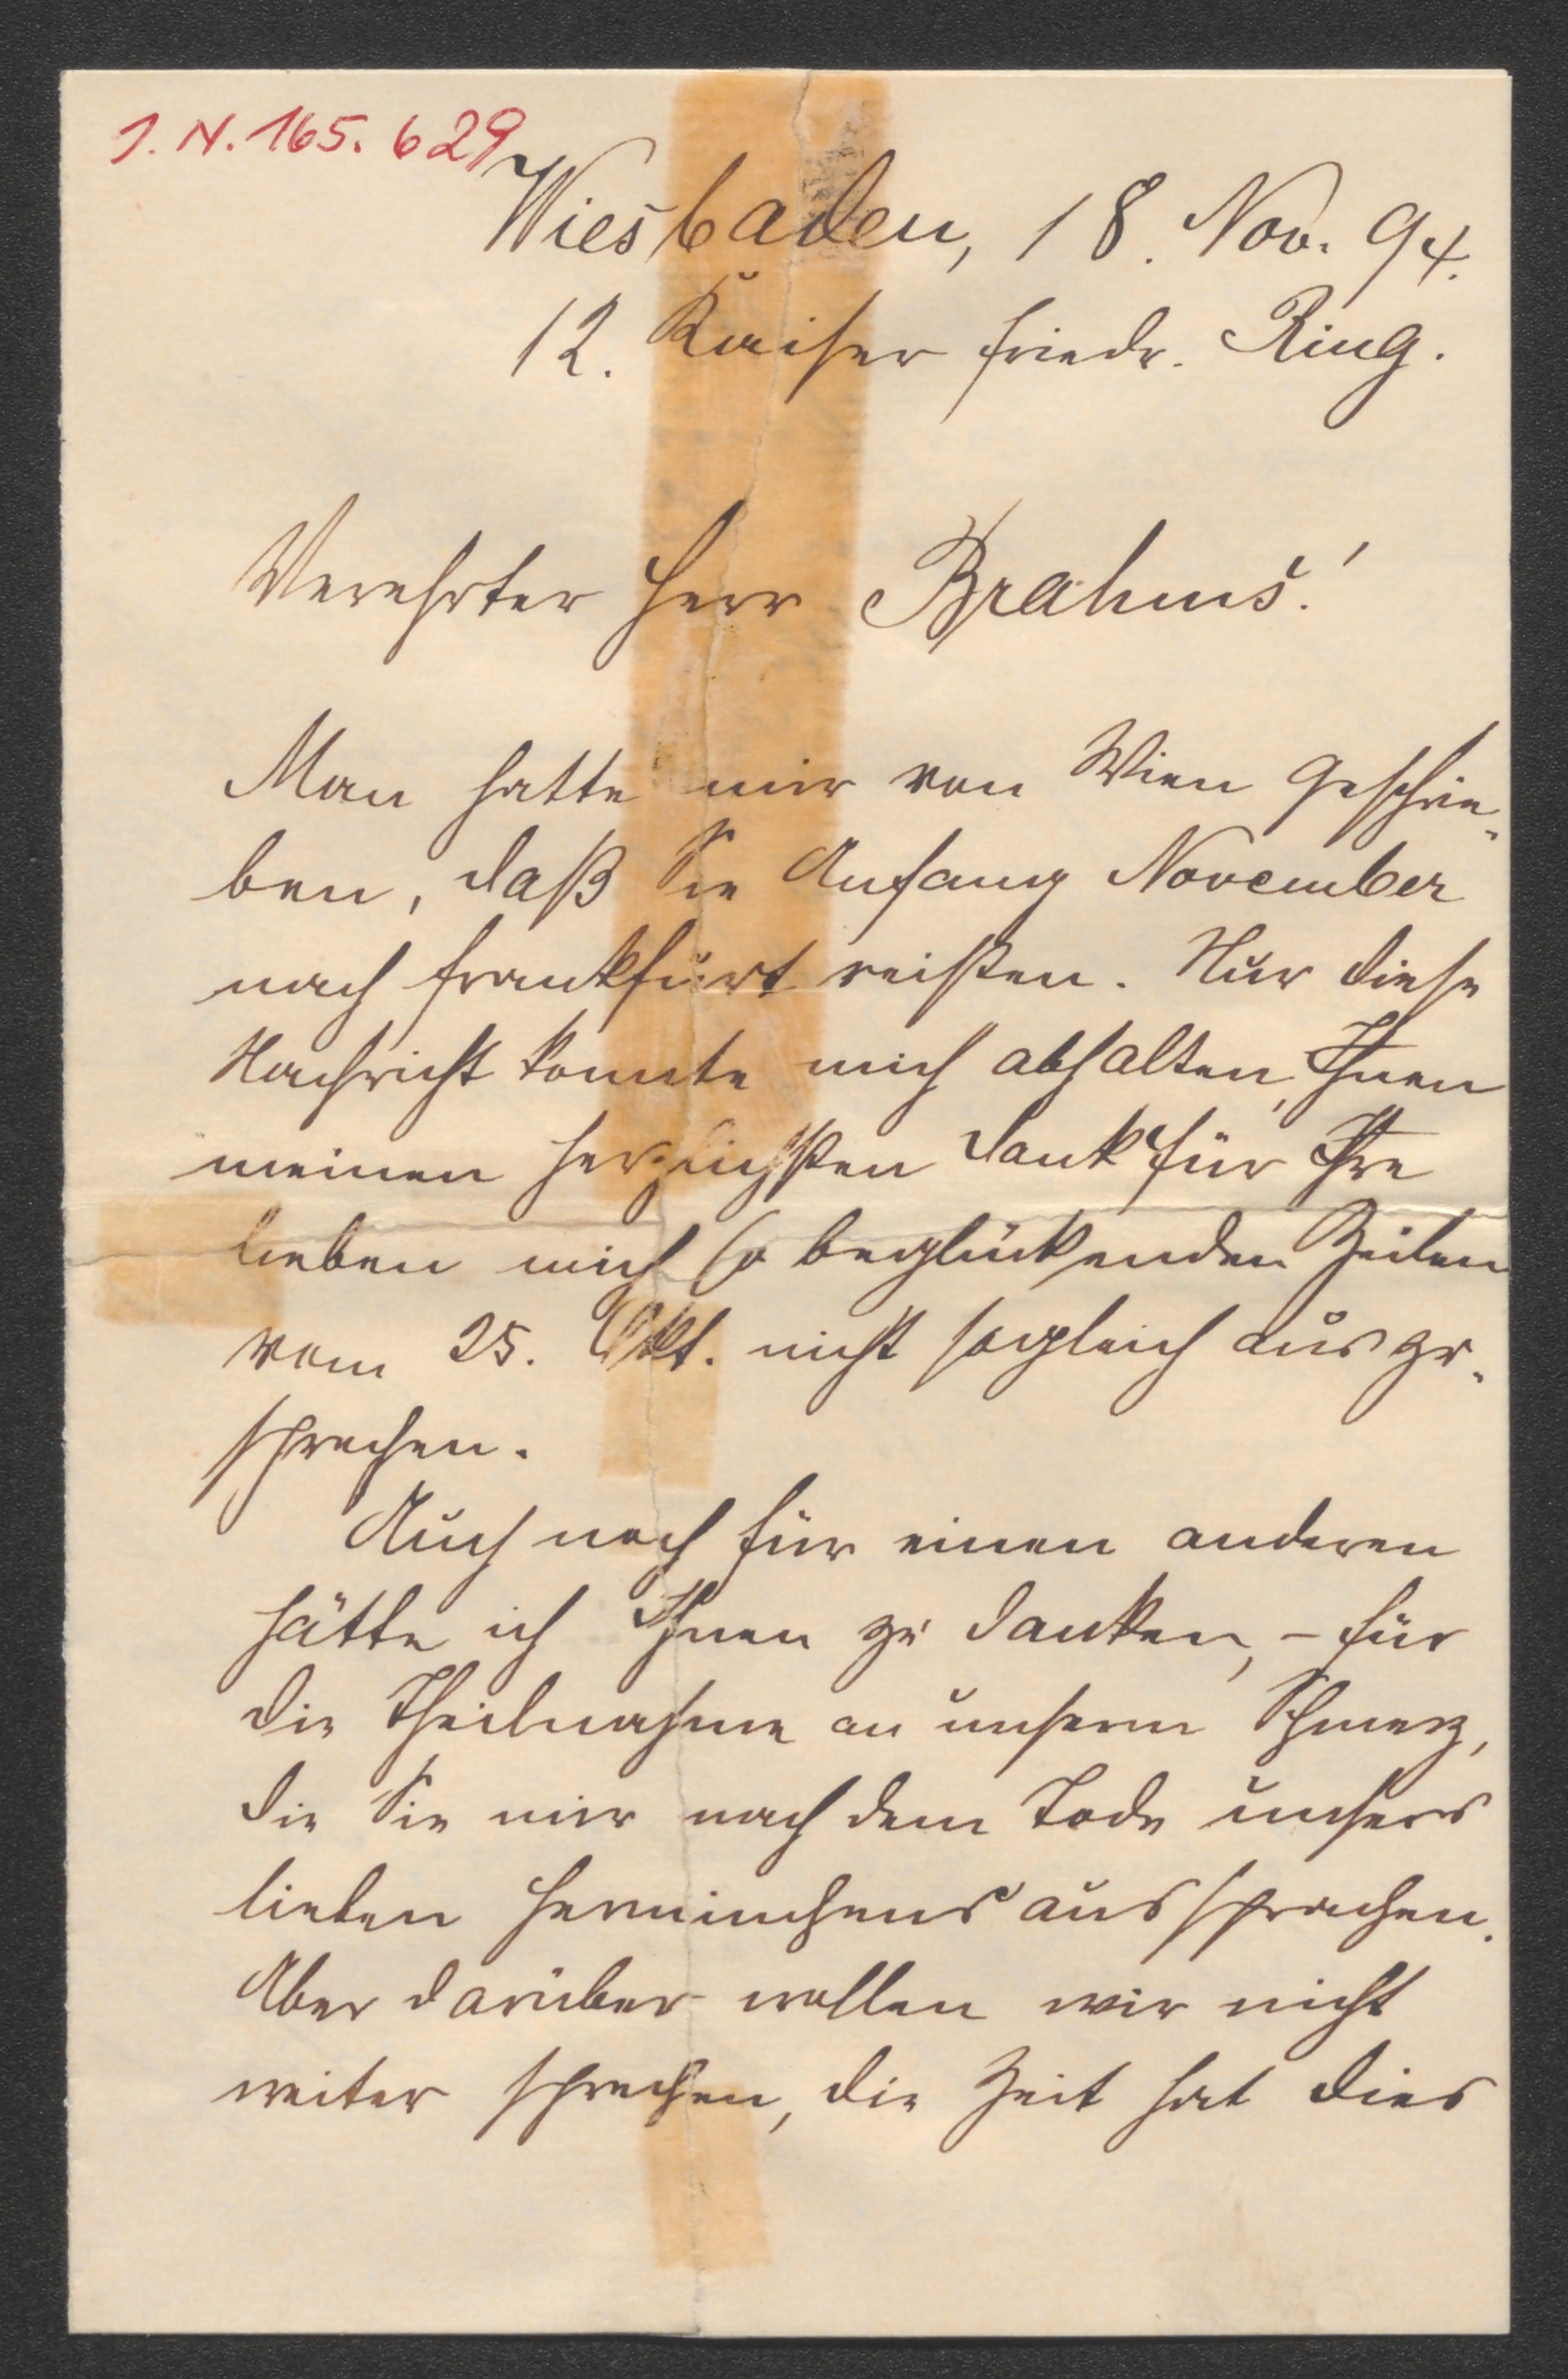 J. N. 165.629
Wiesbaden, 18. Nov. 94.
12. Kaiser Friedr. Ring.
Verehrter Herr Brahms!
Man hatte mir von Wien geschrie-
ben, daß Sie Anfang November
nach Frankfurt reisten. Nur diese
Nachricht konnte mich abhalten, Ihnen
meinen herzlichsten Dank für Ihre
lieben mich so beglückenden Zeilen
vom 25. Okt. nicht sogleich auszu-
sprechen.
Auch noch für einen anderen
hätte ich Ihnen zu danken, – für
die Theilnahme an unserm Schmerz,
die Sie mir nach dem Tode unsers
lieben Herminchens aussprachen.
Aber darüber wollen wir nicht
weiter sprechen, die Zeit hat dies